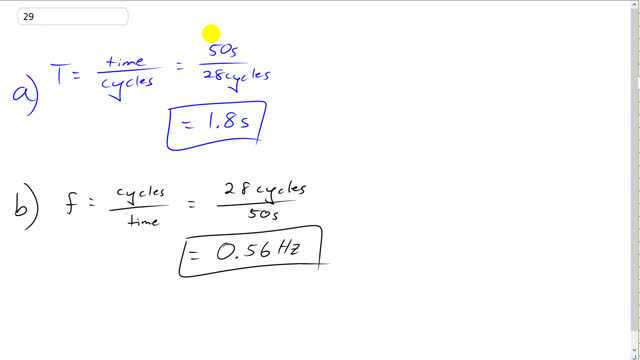 29
a) T = time/cycles = 50s/28cycles
= 1.8 s
b) f = cycles/time = 28 cycles/50s
= 0.56 Hz